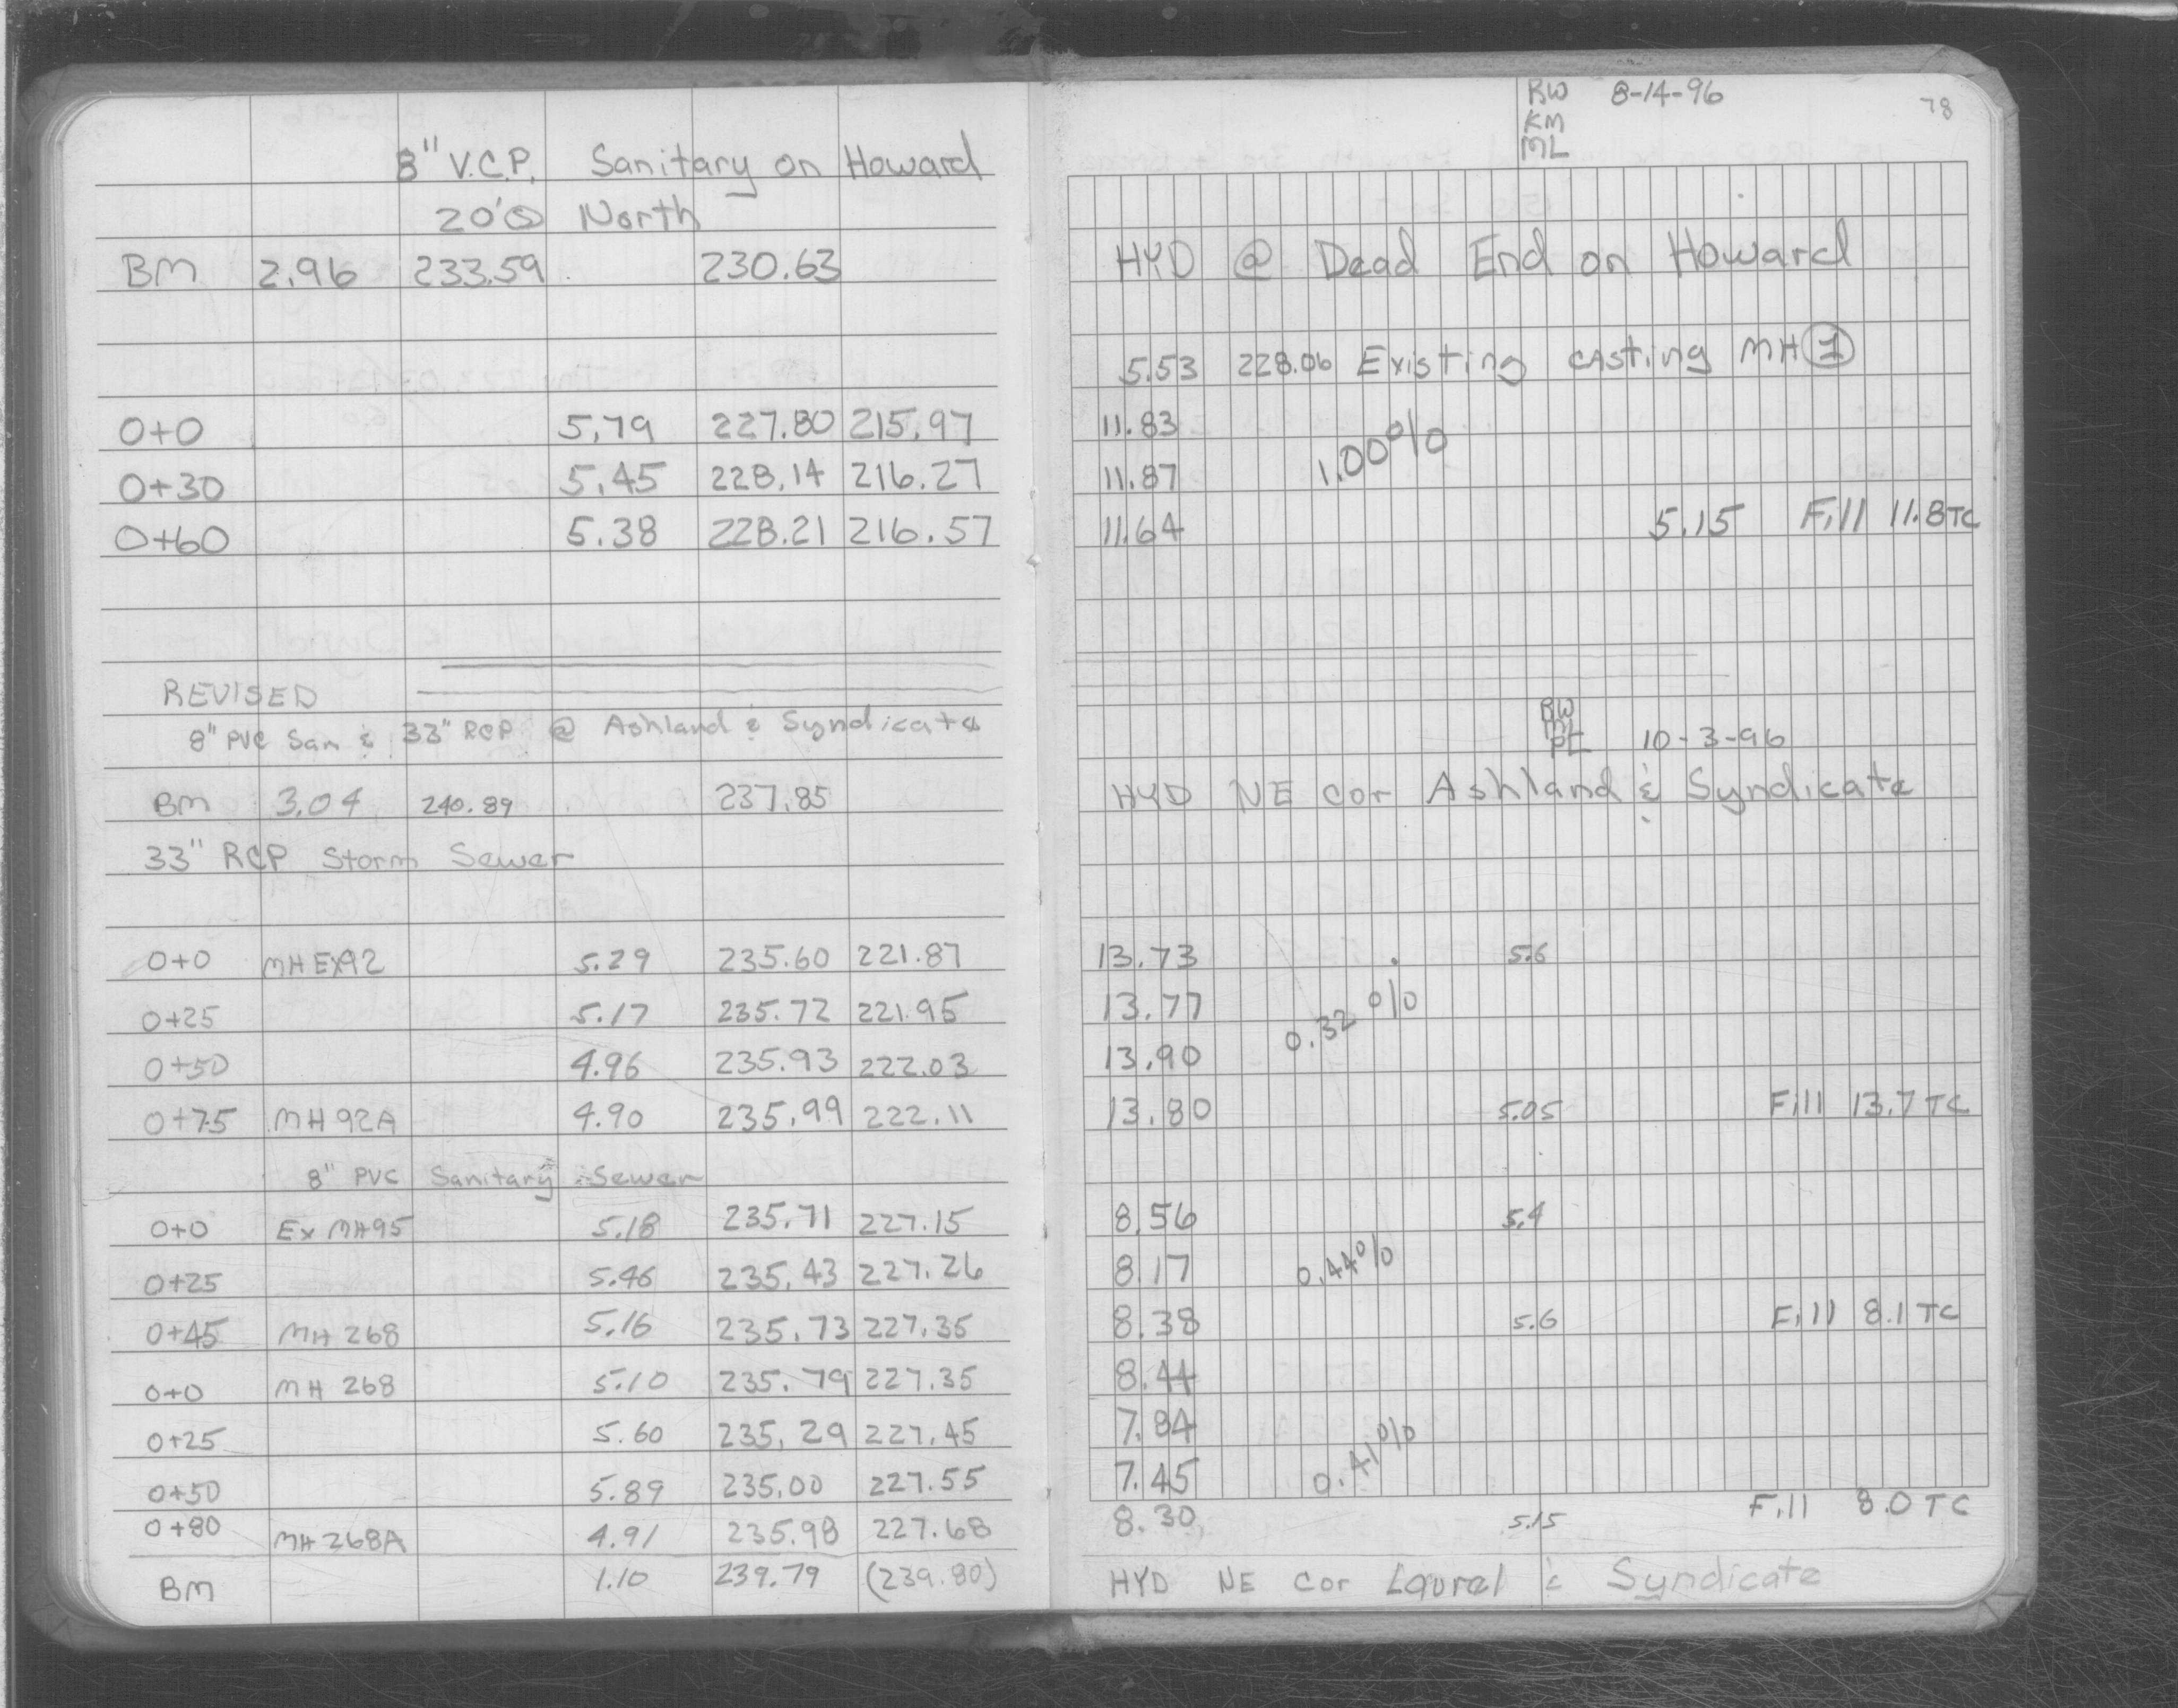 8" V.C.P. Sanitary on Howard
20'Ⓢ North
BM 2.96 233.59 230.63
0+0 5.79 227.80 215.97
0+30 5.45 228.14 216.27
0+60 5.38 228.21 216.57
REVISED
8" PVC San & 33" RCP @ Ashland & Syndicate
BM 3.04 240.89 237.85
33" RCP Storm Sewer
0+0 MH EX92 5.29 235.60 221.87
0+25 5.17 235.72 221.95
0+50 4.96 235.93 222.03
0+75 MH 92A 4.90 235.99 222.11
8" PVC Sanitary Sewer
0+0 Ex MH95 5.18 235.71 227.15
0+25 5.46 235.43 227.26
0+45 MH 268 5.16 235.73 227.35
0+0 MH 268 5.10 235.79 227.35
0+25 5.60 235.29 227.45
0+50 5.89 235.00 227.55
0+80 MH 268A 4.91 235.98 227.68
BM 1.10 239.79 (239.80)
RW 8-14-96 78
KM
ML
HYD @ Dead End on Howard
5.53 228.06 Existing casting MH ①
11.83
11.87 1.00%
11.64 5.15 Fill 11.8 TC
RW
ML
PL 10-3-96
HYD NE cor Ashland & Syndicate
13.73 5.6
13.77 0.32%
13.90
13.80 5.05 Fill 13.7 TC
8.56 5.4
8.17 0.44%
8.38 5.6 Fill 8.1 TC
8.44
7.84
7.45 0.41%
8.30 5.15 Fill 8.0 TC
HYD NE cor Laurel & Syndicate